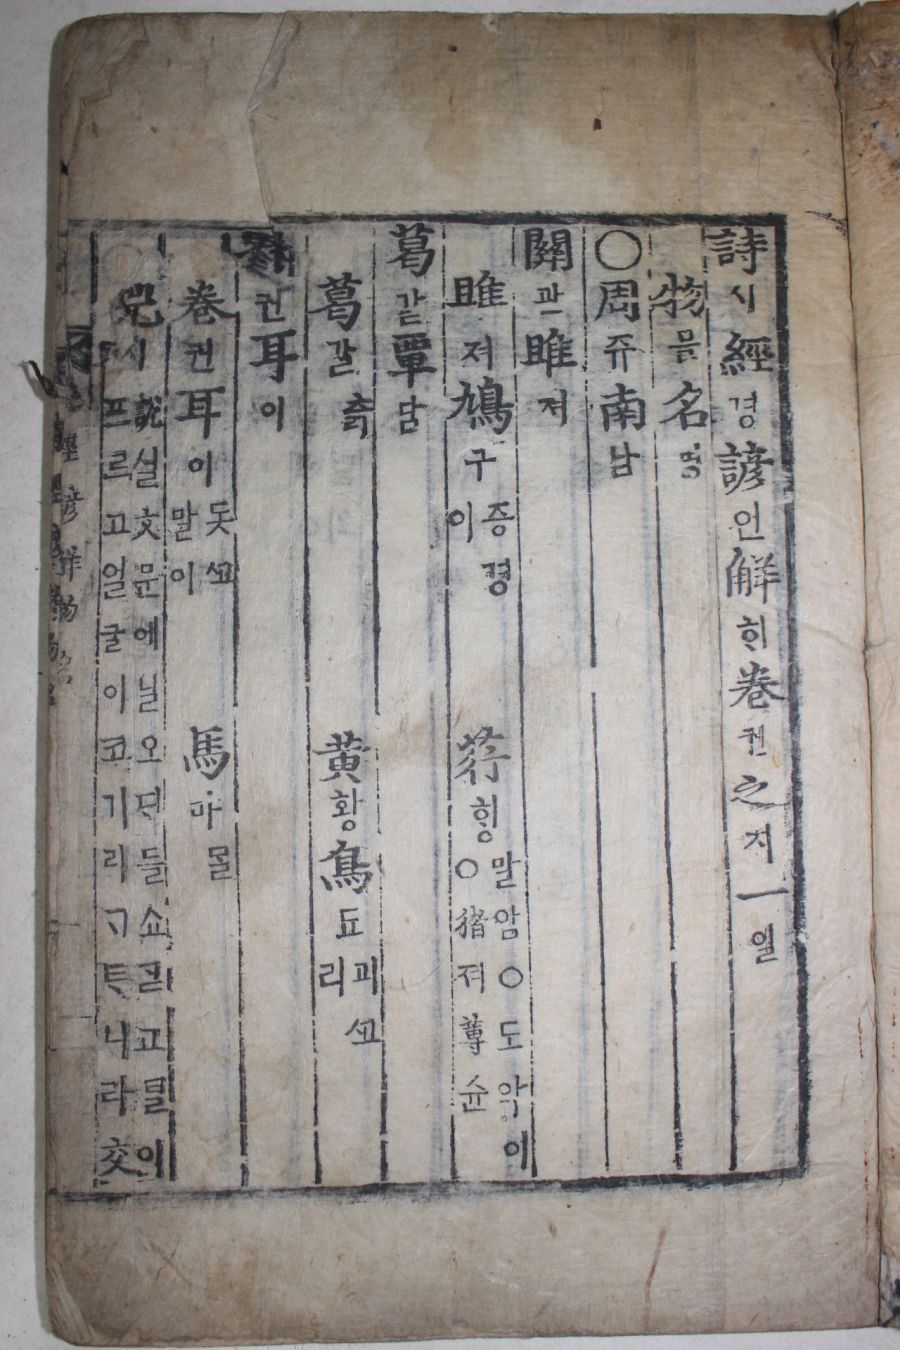 詩시經경諺언解ᄒᆡ卷권之지一일
物믈名명
○周쥬南남
關관雎져
雎져鳩구 증경이 荇ᄒᆡᆼ 말암○도악이○猪져蓴슌
葛갈覃담
葛갈 츩 黃황鳥됴 괴ᄭᅩ리
卷권耳이
卷권耳이 돗ᄭᅩ말이 馬마 ᄆᆞᆯ
兕시 說셜文문에닐오ᄃᆡ들쇼ᄀᆞᆮ고털이
프르고얼굴이코기리ᄀᆞᄐᆞ니라交